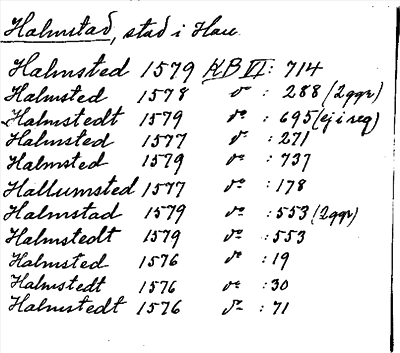 Halmstad, stad i Hall.
Halmsted 1579 KB VI: 714
Halmsted 1578 do : 288 (2ggr)
Halmstedt 1579 do : 695 (ej i reg)
Halmsted 1577 do : 271
Halmsted 1579 do : 737
Hallumsted 1577 do : 178
Halmstad 1579 do : 553 (2ggr)
Halmstedt 1579 do : 553
Halmsted 1576 do : 19
Halmstedt 1576 do : 30
Halmstedt 1576 do : 71